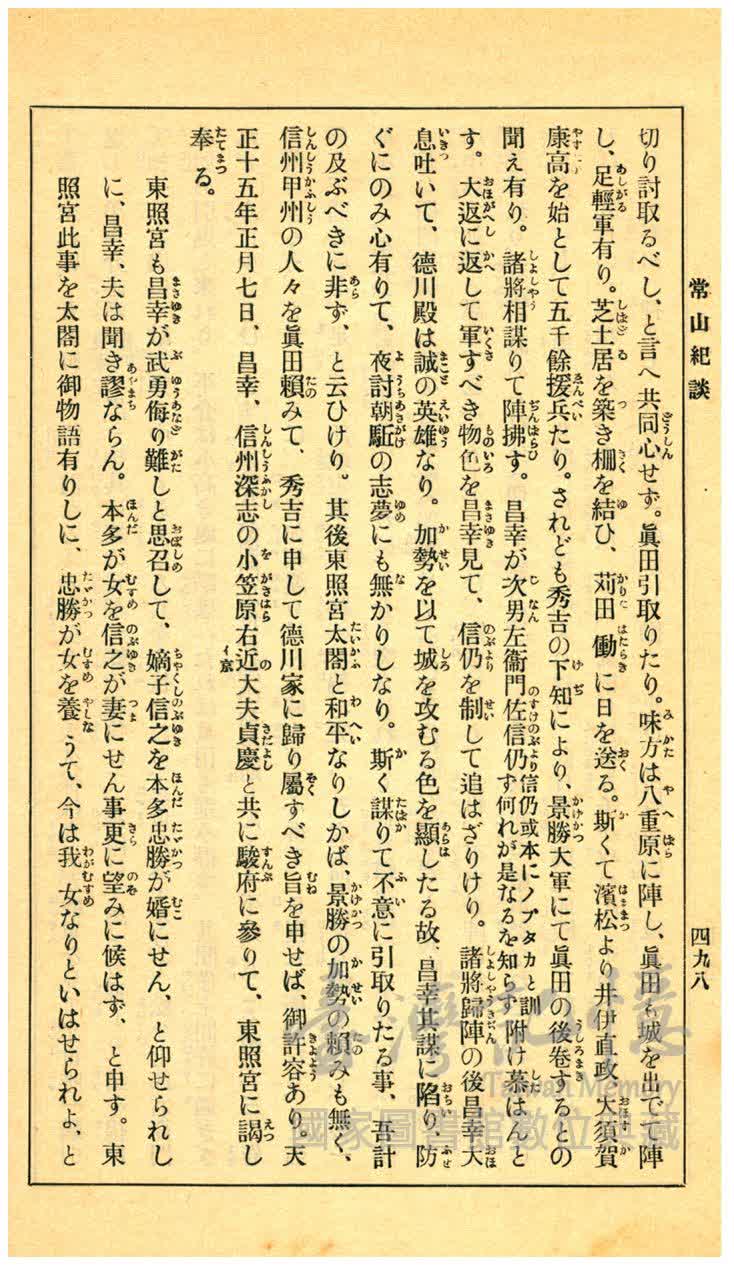 常山紀談
四九八
切り討取るべし、と言へ共同心せず。眞田引取りたり。味方は八重原に陣し、眞田も城を出でて陣
し、足輕軍有り。芝土居を築き柵を結ひ、苅田働に日を送る。斯くて濱松より井伊直政、大須賀
康高を始として五千餘援兵たり。されども秀吉の下知により、景勝大軍にて眞田の後卷するとの
聞え有り。諸將相謀りて陣拂す。昌幸が次男左衞門佐信仍信仍或本にノブタカと訓ず何れが是なるを知らず附け慕はんと
す。大返に返して軍すべき物色を昌幸見て、信仍を制して追はざりけり。諸將歸陣の後昌幸大
息吐いて、德川殿は誠の英雄なり。加勢を以て城を攻むる色を顯したる故、昌幸其謀に陷り、防
ぐにのみ心有りて、夜討朝駈の志夢にも無かりしなり。斯く謀りて不意に引取りたる事、吾計
の及ぶべきに非ず、と云ひけり。其後東照宮太閤と和平なりしかば、景勝の加勢の賴みも無く、
信州甲州の人々を眞田賴みて、秀吉に申して德川家に歸り屬すべき旨を申せば、御許容あり。天
正十五年正月七日、昌幸、信州深志の小笠原右近イ京大夫貞慶と共に駿府に參りて、東照宮に謁し
奉る。
東照宮も昌幸が武勇侮り難しと思召して、嫡子信之を本多忠勝が婿にせん、と仰せられし
に、昌幸、夫は聞き謬ならん。本多が女を信之が妻にせん事更に望みに候はず、と申す。東
照宮此事を太閤に御物語有りしに、忠勝が女を養うて、今は我女なりといはせられよ、と
臺灣記憶
Taiwan Memory
國家圖書館數位典藏